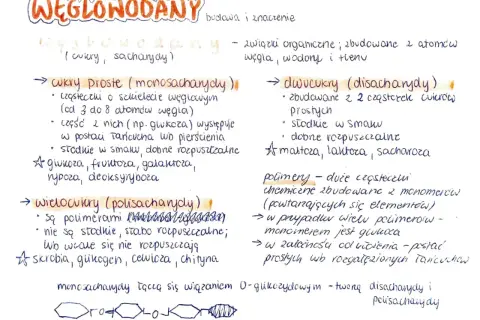 WĘGLOWODANY budowa i znaczenie
węglowodany - związki organiczne; zbudowane z atomów
(cukry, sacharydy) węgla, wodoru i tlenu
→ cukry proste (monosacharydy)
• cząsteczki o szkielecie węglowym
(od 3 do 8 atomów węgla)
• część z nich (np. glukoza) występuje
w postaci łańcucha lub pierścienia
• słodkie w smaku, dobre rozpuszczalne
☆ glukoza, fruktoza, galaktoza,
ryboza, deoksyryboza
→ dwucukry (disacharydy)
• zbudowane z 2 cząsteczek cukrów
prostych
• słodkie w smaku
• dobrze rozpuszczalne
☆ maltoza, laktoza, sacharoza
→ wielocukry (polisacharydy)
• są polimerami
• nie są słodkie, słabo rozpuszczalne;
lub wcale się nie rozpuszczają
☆ skrobia, glikogen, celuloza, chityna
polimery - duże cząsteczki
chemiczne zbudowane z monomerów
(powtarzających się elementów)
→ w przypadku wielu polimerów -
monomerem jest glukoza
→ w zależności od - postać
prostych lub rozgałęzionych łańcuchów
monosacharydy łączą się wiązaniem O-glikozydowym - tworzą disacharydy i
polisacharydy
O O